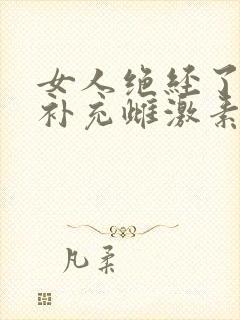 女人绝经了
补充雌激素
凡柔